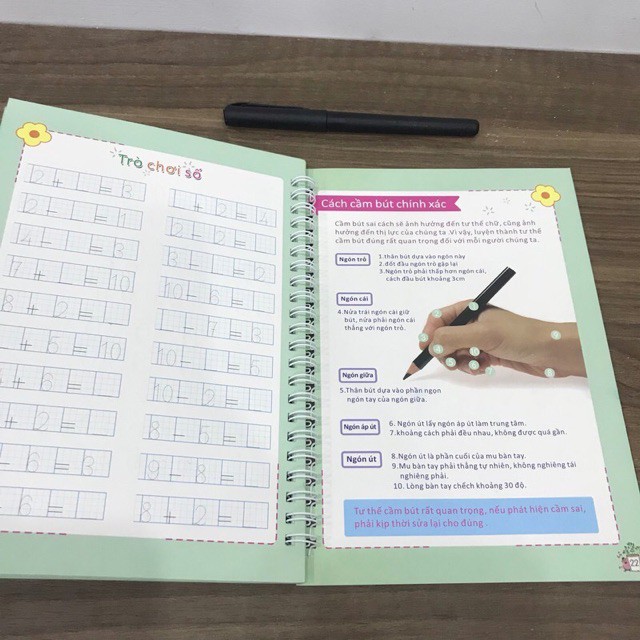 Trò chơi số
2 + = 3
2 - = 1
4 + = 9
7 + = 10
+ 5 = 10
+ 6 =
+ 2 =
- 6 = 3
8 - 6 =
+ 2 = 4
10 - 6 =
+ 7 =
10 - =
10 - 5 =
- 2 =
8 - 4 =
9 - 8 =
8 + 2 =
Cách cầm bút chính xác
Cầm bút sai cách sẽ ảnh hưởng đến tư thế chữ, cũng ảnh
hưởng đến thị lực của chúng ta .Vì vậy, luyện thành tư thế
cầm bút đúng rất quan trọng đối với mỗi người chúng ta.
Ngón trỏ
1.thân bút dựa vào ngón này
2.đốt đầu ngón trỏ gập lại
3.Ngón trỏ phải thấp hơn ngón cái,
cách đầu bút khoảng 3cm
Ngón cái
4.Nửa trái ngón cái giữ
bút, nửa phải ngón cái
thẳng với ngón trỏ.
Ngón giữa
5.Thân bút dựa vào phần ngọn
ngón tay của ngón giữa.
Ngón áp út
6. Ngón út lấy ngón áp út làm trung tâm.
7.khoảng cách phải đều nhau, không được quá gần.
Ngón út
8.Ngón út là phần cuối của mu bàn tay.
9.Mu bàn tay phải thẳng tự nhiên, không nghiêng tái
nghiêng phải.
10. Lòng bàn tay chếch khoảng 30 độ.
Tư thế cầm bút rất quan trọng, nếu phát hiện cầm sai,
phải kịp thời sửa lại cho đúng .
22